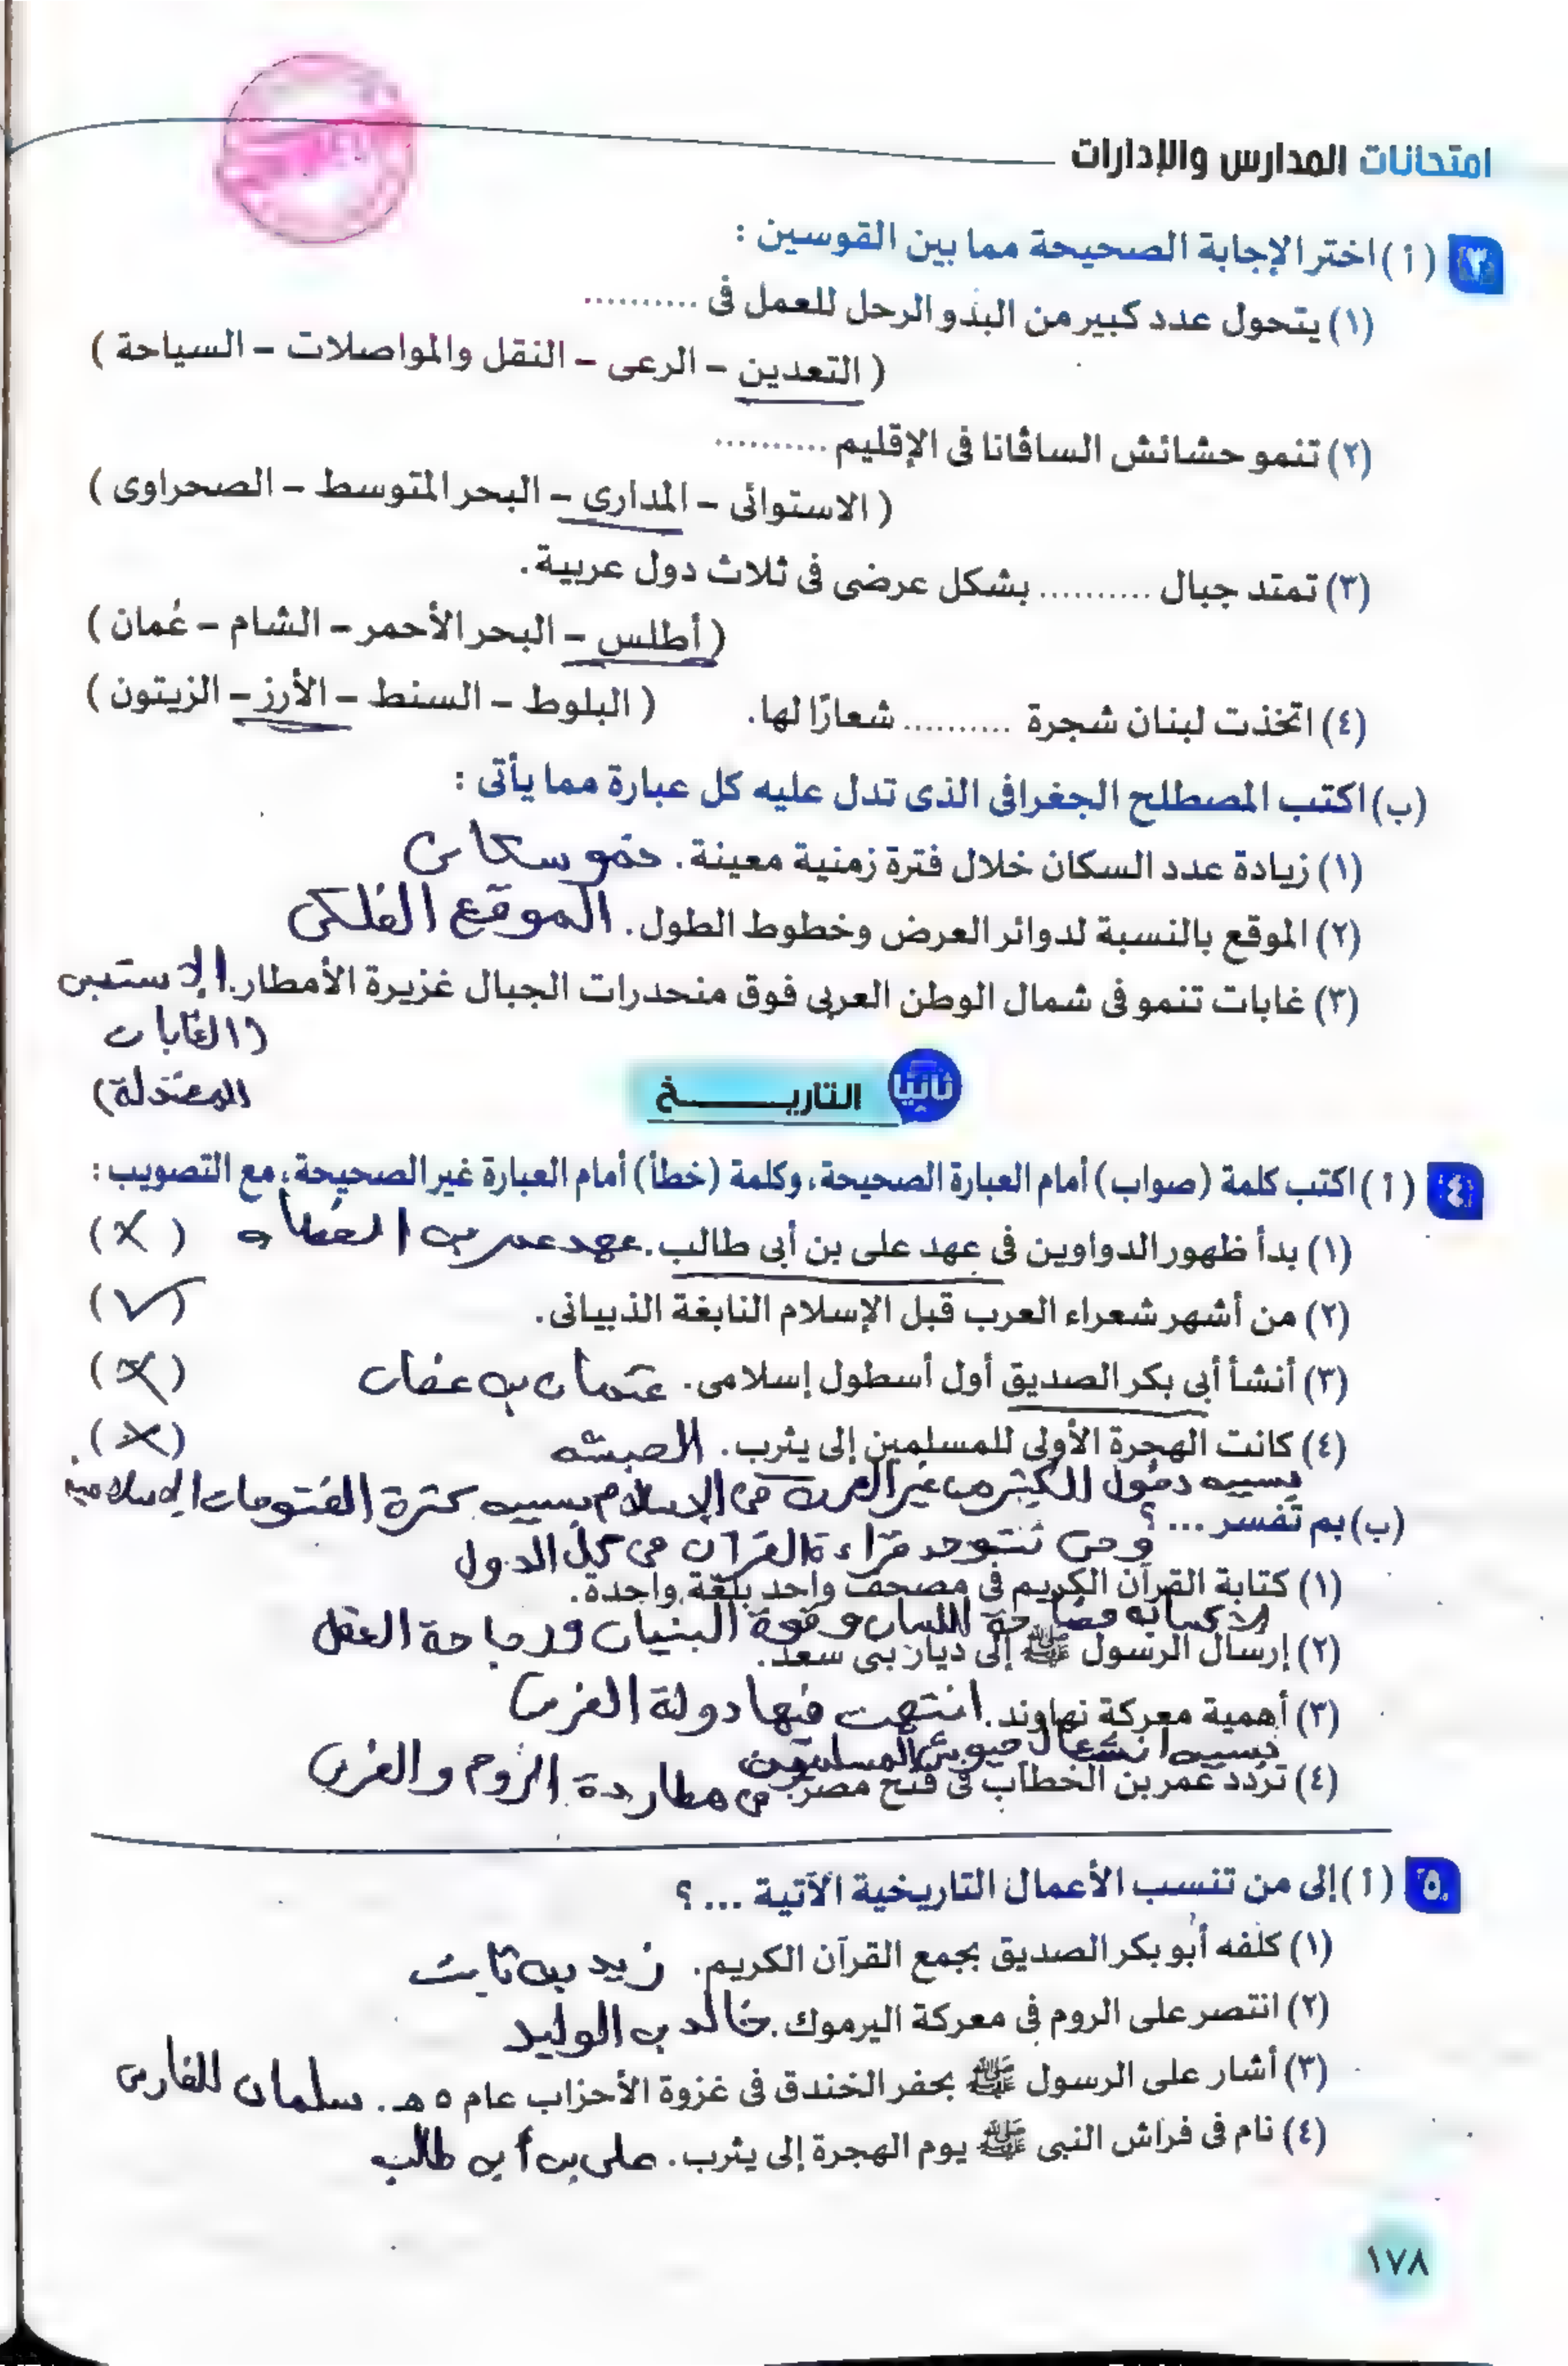 امتحانات المدارس والإدارات
٣ (أ) اختر الإجابة الصحيحة مما بين القوسين :
(١) يتحول عدد كبير من البدو الرحل للعمل فى ..........
( التعدين – الرعى – النقل والمواصلات – السياحة )
(٢) تنمو حشائش الساڤانا فى الإقليم ..........
( الاستوائى – المدارى – البحر المتوسط – الصحراوى )
(٣) تمتد جبال .......... بشكل عرضى فى ثلاث دول عربية.
( أطلس – البحر الأحمر – الشام – عُمان )
(٤) اتخذت لبنان شجرة .......... شعارًا لها. ( البلوط – السنط – الأرز – الزيتون )
(ب) اكتب المصطلح الجغرافى الذى تدل عليه كل عبارة مما يأتى :
(١) زيادة عدد السكان خلال فترة زمنية معينة. نمو سكانى
(٢) الموقع بالنسبة لدوائر العرض وخطوط الطول. الموقع الفلكى
(٣) غابات تنمو فى شمال الوطن العربى فوق منحدرات الجبال غزيرة الأمطار. الإستبس
(الغابات
المعتدلة)
ثانيًا التاريــــــخ
٤ (أ) اكتب كلمة (صواب) أمام العبارة الصحيحة، وكلمة (خطأ) أمام العبارة غير الصحيحة، مع التصويب :
(١) بدأ ظهور الدواوين فى عهد على بن أبى طالب. عهد عمر بن الخطاب (✗)
(٢) من أشهر شعراء العرب قبل الإسلام النابغة الذبيانى. (✓)
(٣) أنشأ أبى بكر الصديق أول أسطول إسلامى. عثمان بن عفان (✗)
(٤) كانت الهجرة الأولى للمسلمين إلى يثرب. الحبشه (✗)
بسبب دخول الكثير من غير العرب فى الإسلام بسبب كثرة الفتوحات الإسلامية
(ب) بم تفسر ... ؟
وحتى تتوحد قراءة القرآن فى كل الدول
(١) كتابة القرآن الكريم فى مصحف واحد بلغة واحدة.
لاكسابه فصاحة اللسان وقوة البنيان ورجاحة العقل
(٢) إرسال الرسول ﷺ إلى ديار بنى سعد.
(٣) أهمية معركة نهاوند. انتهت فيها دولة الفرس
بسبب انشغال جيوش المسلمون
(٤) تردد عمر بن الخطاب فى فتح مصر. فى مطاردة الروم والفرس
٥ (أ) إلى من تنسب الأعمال التاريخية الآتية ... ؟
(١) كلفه أبو بكر الصديق بجمع القرآن الكريم. زيد بن ثابت
(٢) انتصر على الروم فى معركة اليرموك. خالد بن الوليد
(٣) أشار على الرسول ﷺ بحفر الخندق فى غزوة الأحزاب عام ٥ هـ. سلمان الفارسى
(٤) نام فى فراش النبى ﷺ يوم الهجرة إلى يثرب. على بن أبى طالب
١٧٨